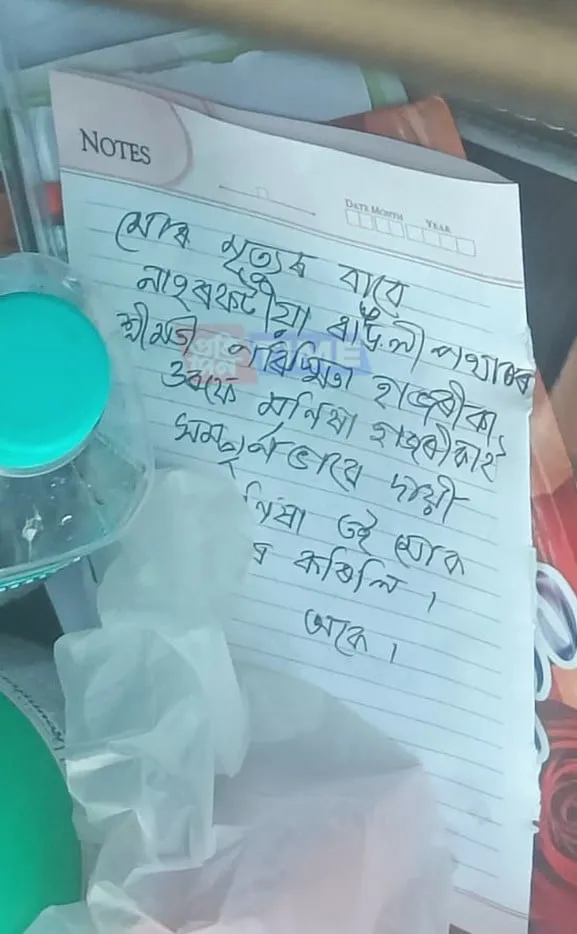 NOTES
DATE MONTH YEAR
মোৰ মৃত্যুৰ বাবে
নাহৰফটীয়া
শ্ৰীমতী হাজৰীকা
ওৰফে মনিষা হাজৰীকাই
সম্পূৰ্নভাৱে দায়ী
তই মোক
কৰিলি ।
অকে ।